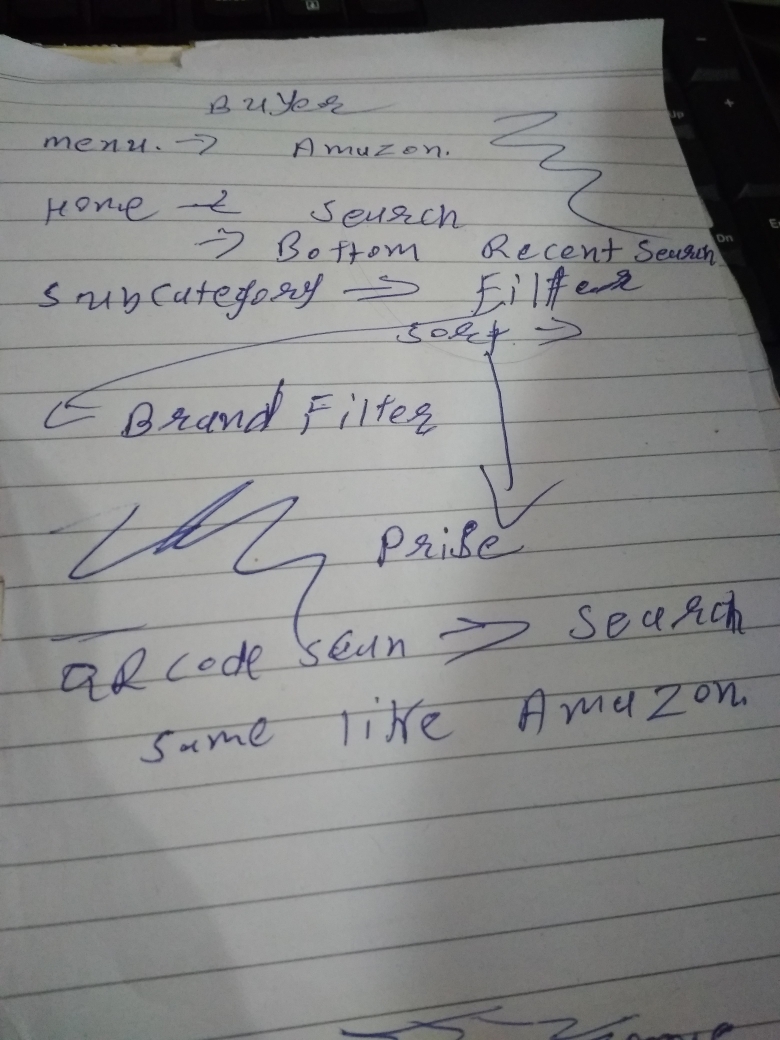 Buyer
menu. → Amazon.
Home → Search
→ Bottom Recent Search
Subcategory ⇒ Filter
Sort ⇒
← Brand Filter
Prise
QR code scan ⇒ Search
same like Amazon.